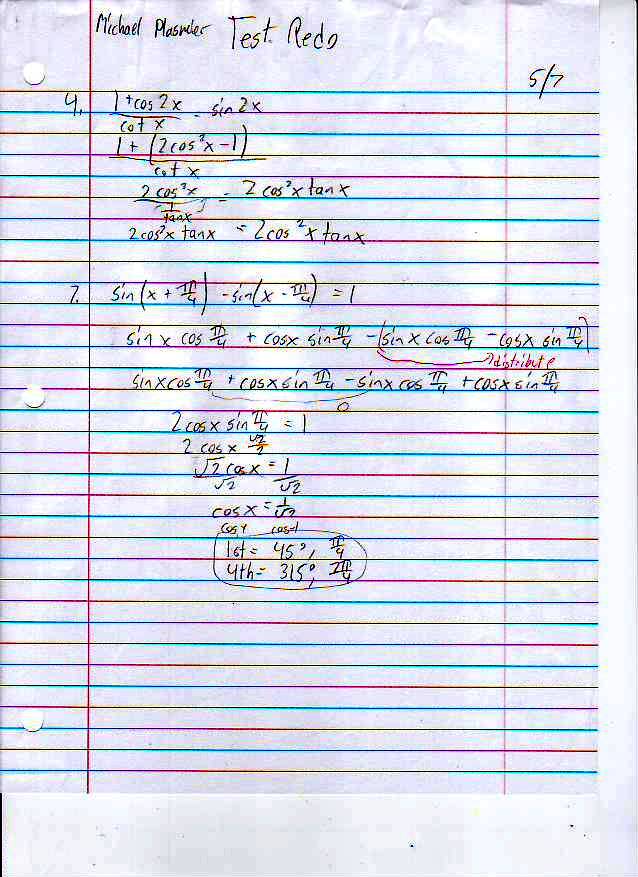 Michael Test Redo
5/7
4. 1+cos2x / cot x = sin2x
1 + (2cos²x - 1) / cot x
2cos²x / 1/tanx = 2cos²x tanx
2cos²x tanx = 2cos²x tanx
7. sin(x + π/4) - sin(x - π/4) = 1
sin x cos π/4 + cosx sin π/4 - (sin x cos π/4 - cosx sin π/4)
distribute
sinxcos π/4 + cosxsin π/4 - sinx cos π/4 + cosxsin π/4
0
2cosx sin π/4 = 1
2 cosx √2/2
√2 cosx / √2 = 1 / √2
cosx = 1/√2
1st = 45°, π/4
4th = 315°, 7π/4